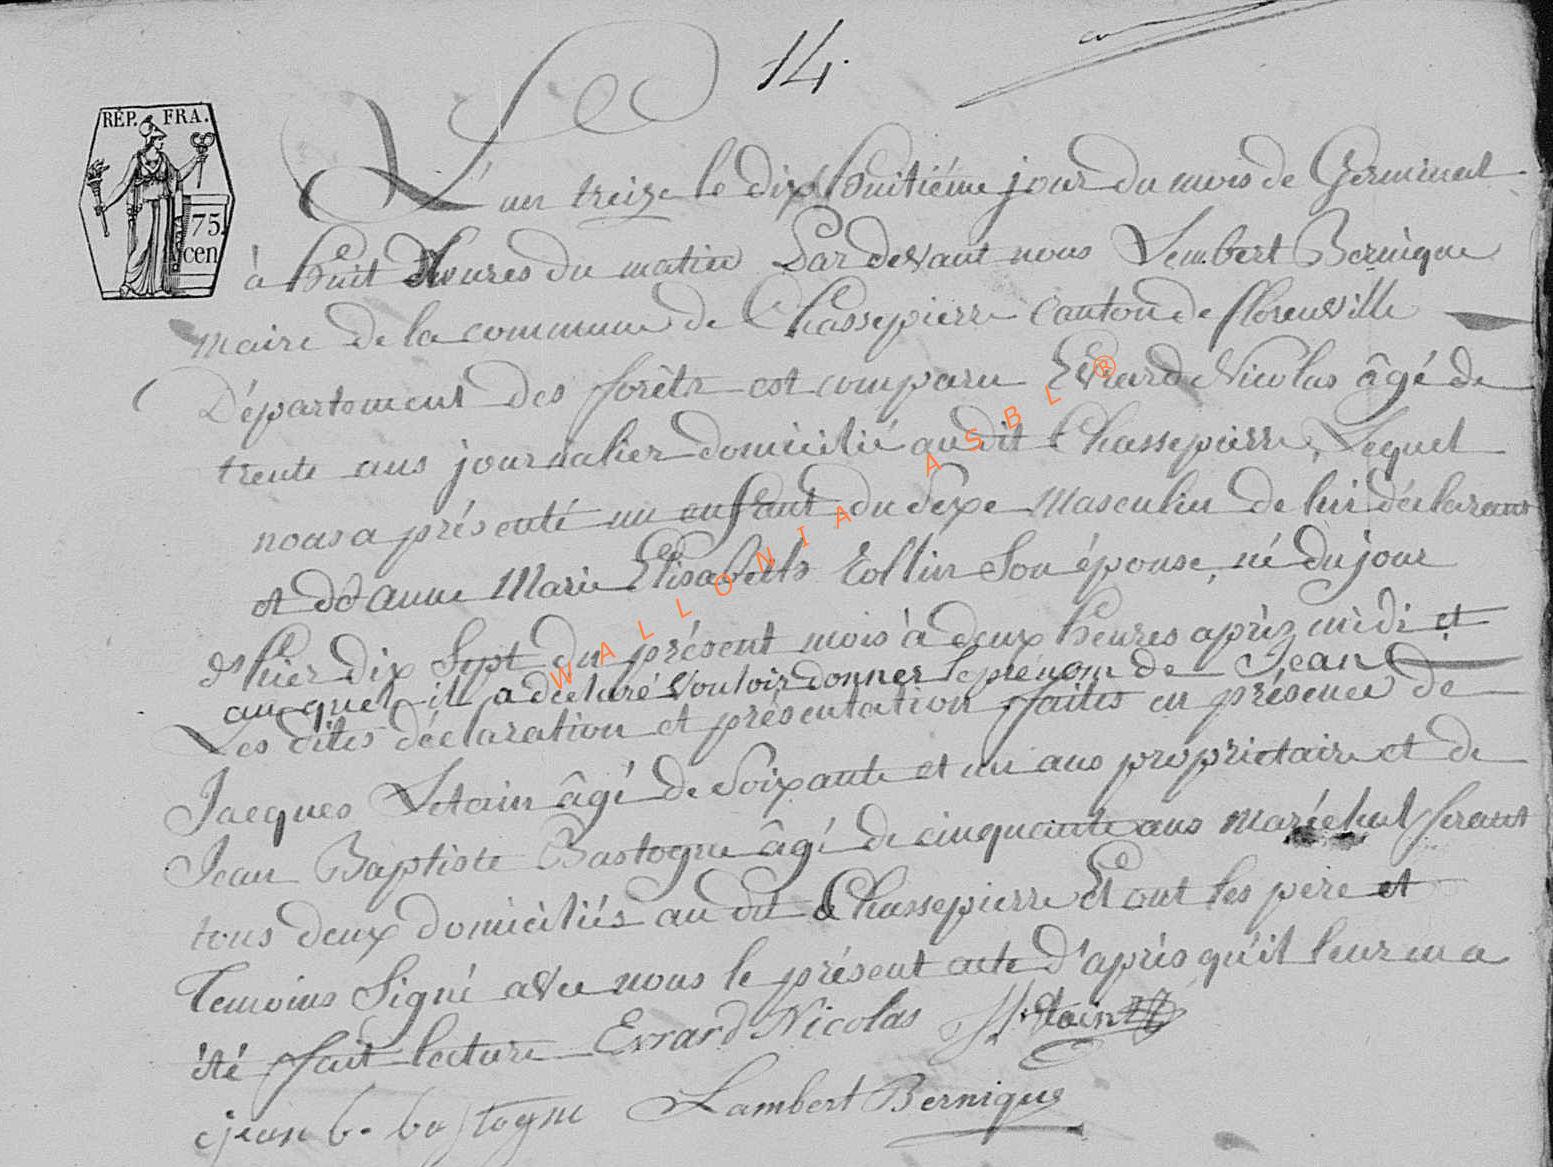 14.
RÉP. FRA.
75
cen
L'an treize le dix huitiéme jour du mois de Germinal
à huit heures du matin Pardevant nous Lembert Bernique
maire de la commune de Chassepierre canton de florenville
Département des forêts est comparu Evrard Nicolas âgé de
trente ans journalier domicilié audit Chassepierre, Lequel
nous a présenté un enfant du sexe masculin de lui déclarant
et de anne Marie Elisabeth Collin son épouse, né du jour
d'hier dix sept du présent mois à deux heures après midi et
auquel il a declaré vouloir donner le prenom de Jean
Les dites déclaration et présentation faites en présence de
Jacques Letain âgé de soixante et un ans proprietaire et de
Jean Baptiste Bastogne âgé de cinquante ans maréchal ferant
tous deux domiciliés au dit Chassepierre Et ont les père et
Temoins signé avec nous le présent acte d'après qu'il leur en a
été fait lecture Evrard Nicolas
jean b. bastogne Lambert Bernique
WALLONIA ASBL ®